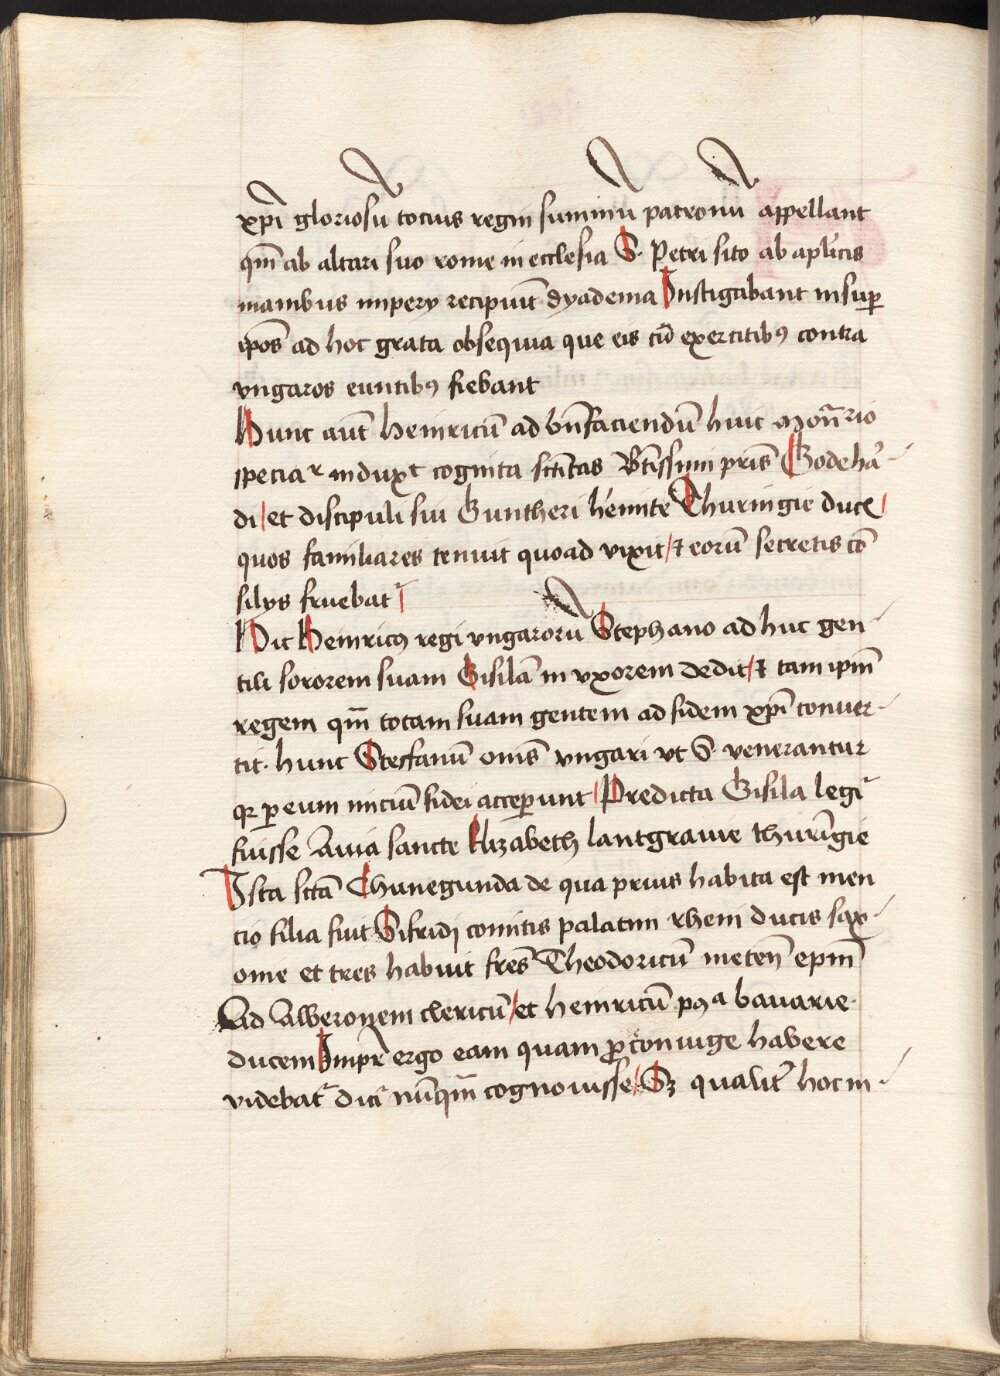 xp̄i gloriosū tocius regni summū patronū appellant
qm̄ ab altari suo rome in ecclesia S. Petri sito ab aplicis
manibus impery recipiūt dyadema Instigabant insuꝑ
ip̄os ad hoc grata obsequia que eis cū exercitibꝯ contra
vngaros euntibꝯ fiebant
Hunc aūt Heinricū ad bn̄faciendū huic Mon̄rio
specia induxt cognita sc̄titas Bt̄issimi pr̄is Godeha
di et discipuli sui Guntheri h̓emite Thuringie duc
quos familiares tenuit quoad vixit ⁊ eorū secretis cō
silys fruebat᷑
Hic Heinricꝯ regi vngarorū Stephano ad huc gen
tili sororem suam Gisilā in vxorem dedit ⁊ tam ip̄m
regem qm̄ totam suam gentem ad fidem xp̄i conuer
tit. hunc Steffanū om̄s vngari vt S. venerantur
qꝛ ꝑ eum iniciū fidei acceꝑunt Predicta Gisila legi᷑
fuisse Auia sancte Elizabeth lantgrauie thur̄igie
Ista sc̄tā Chunegunda de qua prius habita est men
cio filia fuit Sifridj comitis palatini rheni ducis sax
onie et tres habuit fr̄es Theodoricū meteñ ep̄m
Ad Alberonem clericū et heinricū pꝯa bauarie
ducem Impr̄ ergo eam quam ꝓ coniuge habere
videbat᷑ dici᷑ nūqm̄ cognouisse Sꝫ qualit̓ hoc in